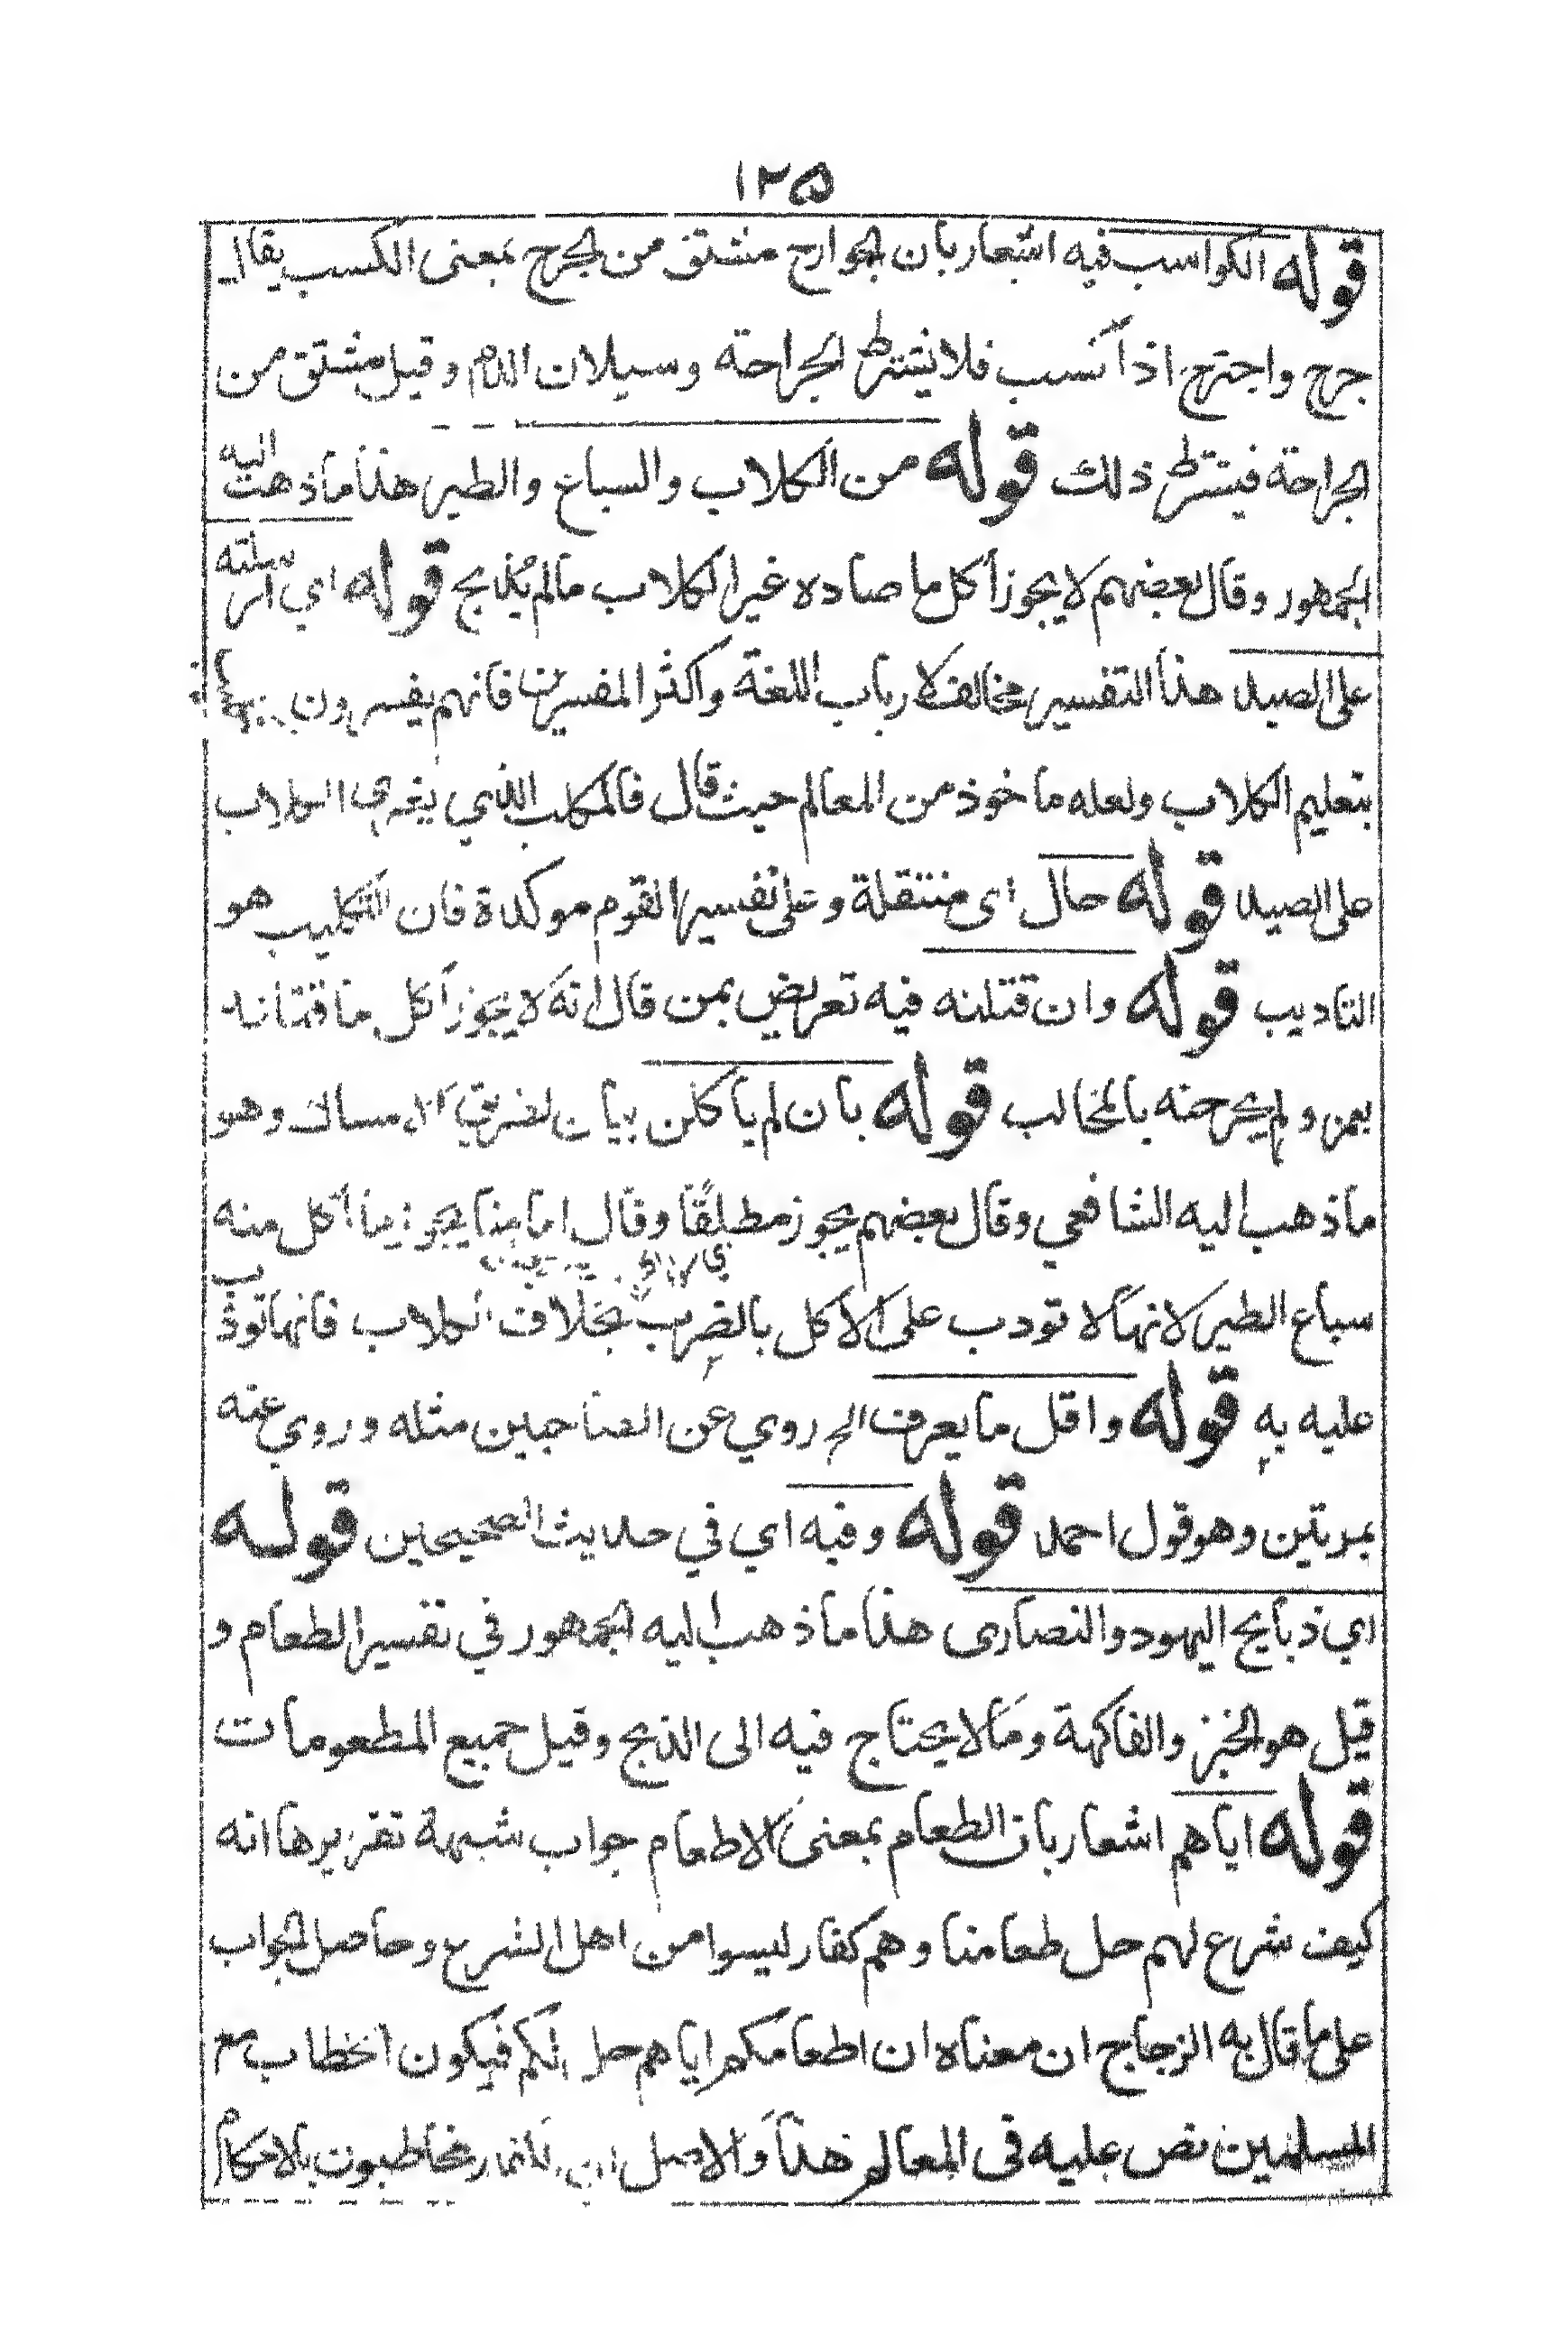 ١٢٥
قوله الكواسب فيه اشعار بان الجوارح مشتق من الجرح بمعنى الكسب يقال
جرح واجترح اذا كسب فلا يشترط الجراحة وسيلان الدم وقيل مشتق من
الجراحة فيشترط ذلك قوله من الكلاب والسباع والطير هذا ما ذهب اليه
الجمهور وقال بعضهم لا يجوز أكل ما صاده غير الكلاب مالم يذبح قوله اي ارسلته
على الصيد هذا التفسير مخالف لارباب اللغة واكثر المفسرين فانهم يفسرون
بتعليم الكلاب ولعله ماخوذ من المعالم حيث قال فالمكلب الذي يغرى الكلاب
على الصيد قوله حال اى منتقلة وعلى تفسير القوم موكدة فان التكليب هو
التاديب قوله وان قتلنه فيه تعريض بمن قال انه لا يجوز أكل ما قتلنه
بمن ولم يجرحنه بالمخالب قوله بان لم ياكلن بيان لطريق الامساك وهو
ما ذهب اليه الشافعي وقال بعضهم يجوز مطلقًا وقال امامنا يجوز ما أكل منه
سباع الطير لانها لا تودب على الاكل بالضرب بخلاف الكلاب فانها تودب
عليه به قوله واقل ما يعرف الخ روي عن الصاحبين مثله وروي عنه
بمرتين وهو قول احمد قوله وفيه اي في حديث الصحيحين قوله
اي ذبايح اليهود والنصارى هذا ما ذهب اليه الجمهور في تفسير الطعام و
قيل هو الخبز والفاكهة وما لا يحتاج فيه الى الذبح وقيل جميع المطعومات
قوله اياهم اشعار بان الطعام بمعنى الاطعام جواب شبهة تقريرها انه
كيف شرع لهم حل طعامنا وهم كفار ليسوا من اهل الشرع وحاصل الجواب
على ما قال به الزجاج ان معناه ان اطعامكم اياهم حل لكم فيكون الخطاب مع
المسلمين نص عليه فى المعالم هذا والاصل ان الكفار مخاطبون بالاحكام